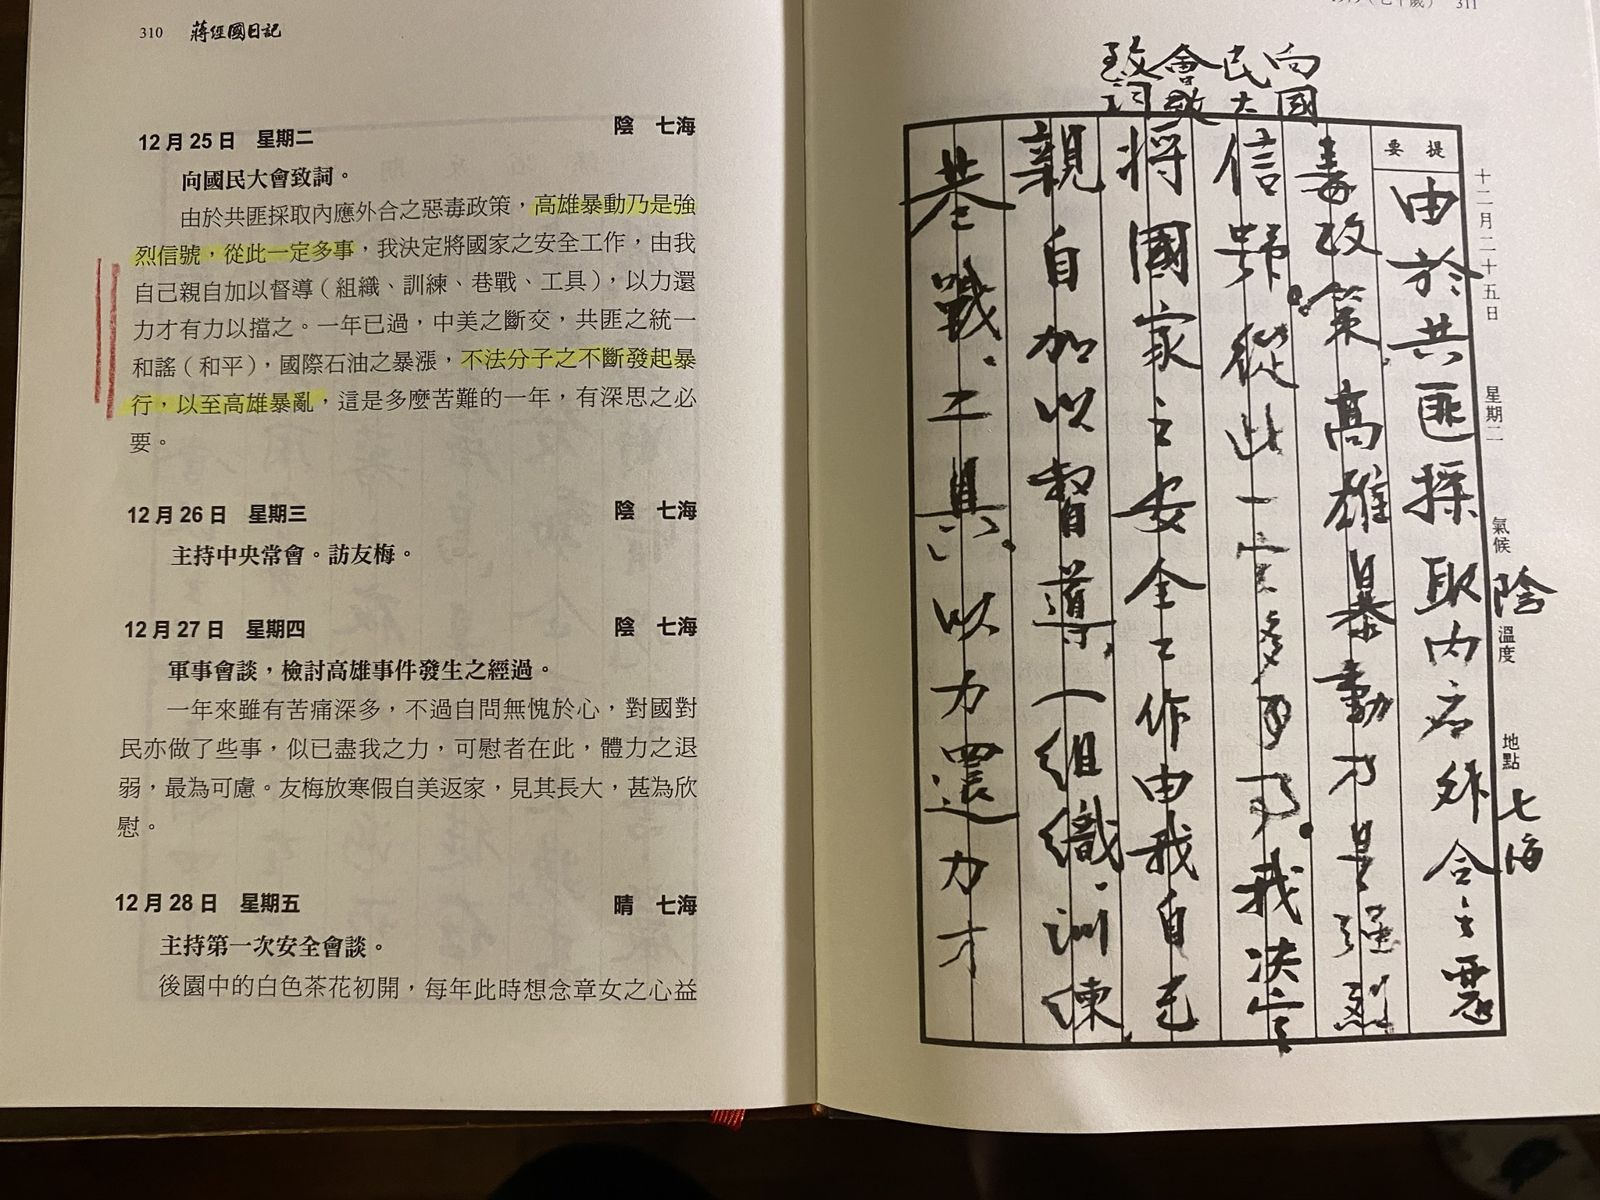 310 蔣經國日記
12月25日 星期二 陰 七海
向國民大會致詞。
由於共匪採取內應外合之惡毒政策，高雄暴動乃是強
烈信號，從此一定多事，我決定將國家之安全工作，由我
自己親自加以督導（組織、訓練、巷戰、工具），以力還
力才有力以擋之。一年已過，中美之斷交，共匪之統一
和謠（和平），國際石油之暴漲，不法分子之不斷發起暴
行，以至高雄暴亂，這是多麼苦難的一年，有深思之必
要。
12月26日 星期三 陰 七海
主持中央常會。訪友梅。
12月27日 星期四 陰 七海
軍事會談，檢討高雄事件發生之經過。
一年來雖有苦痛深多，不過自問無愧於心，對國對
民亦做了些事，似已盡我之力，可慰者在此，體力之退
弱，最為可慮。友梅放寒假自美返家，見其長大，甚為欣
慰。
12月28日 星期五 晴 七海
主持第一次安全會談。
後園中的白色茶花初開，每年此時想念章女之心益
1979（七十歲） 311
向國
民大
會致
詞
十二月二十五日 星期二 氣候 陰 溫度 地點 七海
提要
由於共匪採取內应外合之惡
毒政策，高雄暴動乃是强烈
信號。從此一定多事。我決定
將國家之安全工作由我自己
親自加以督導，（組織、訓練、
巷戰、工具。以力還力才